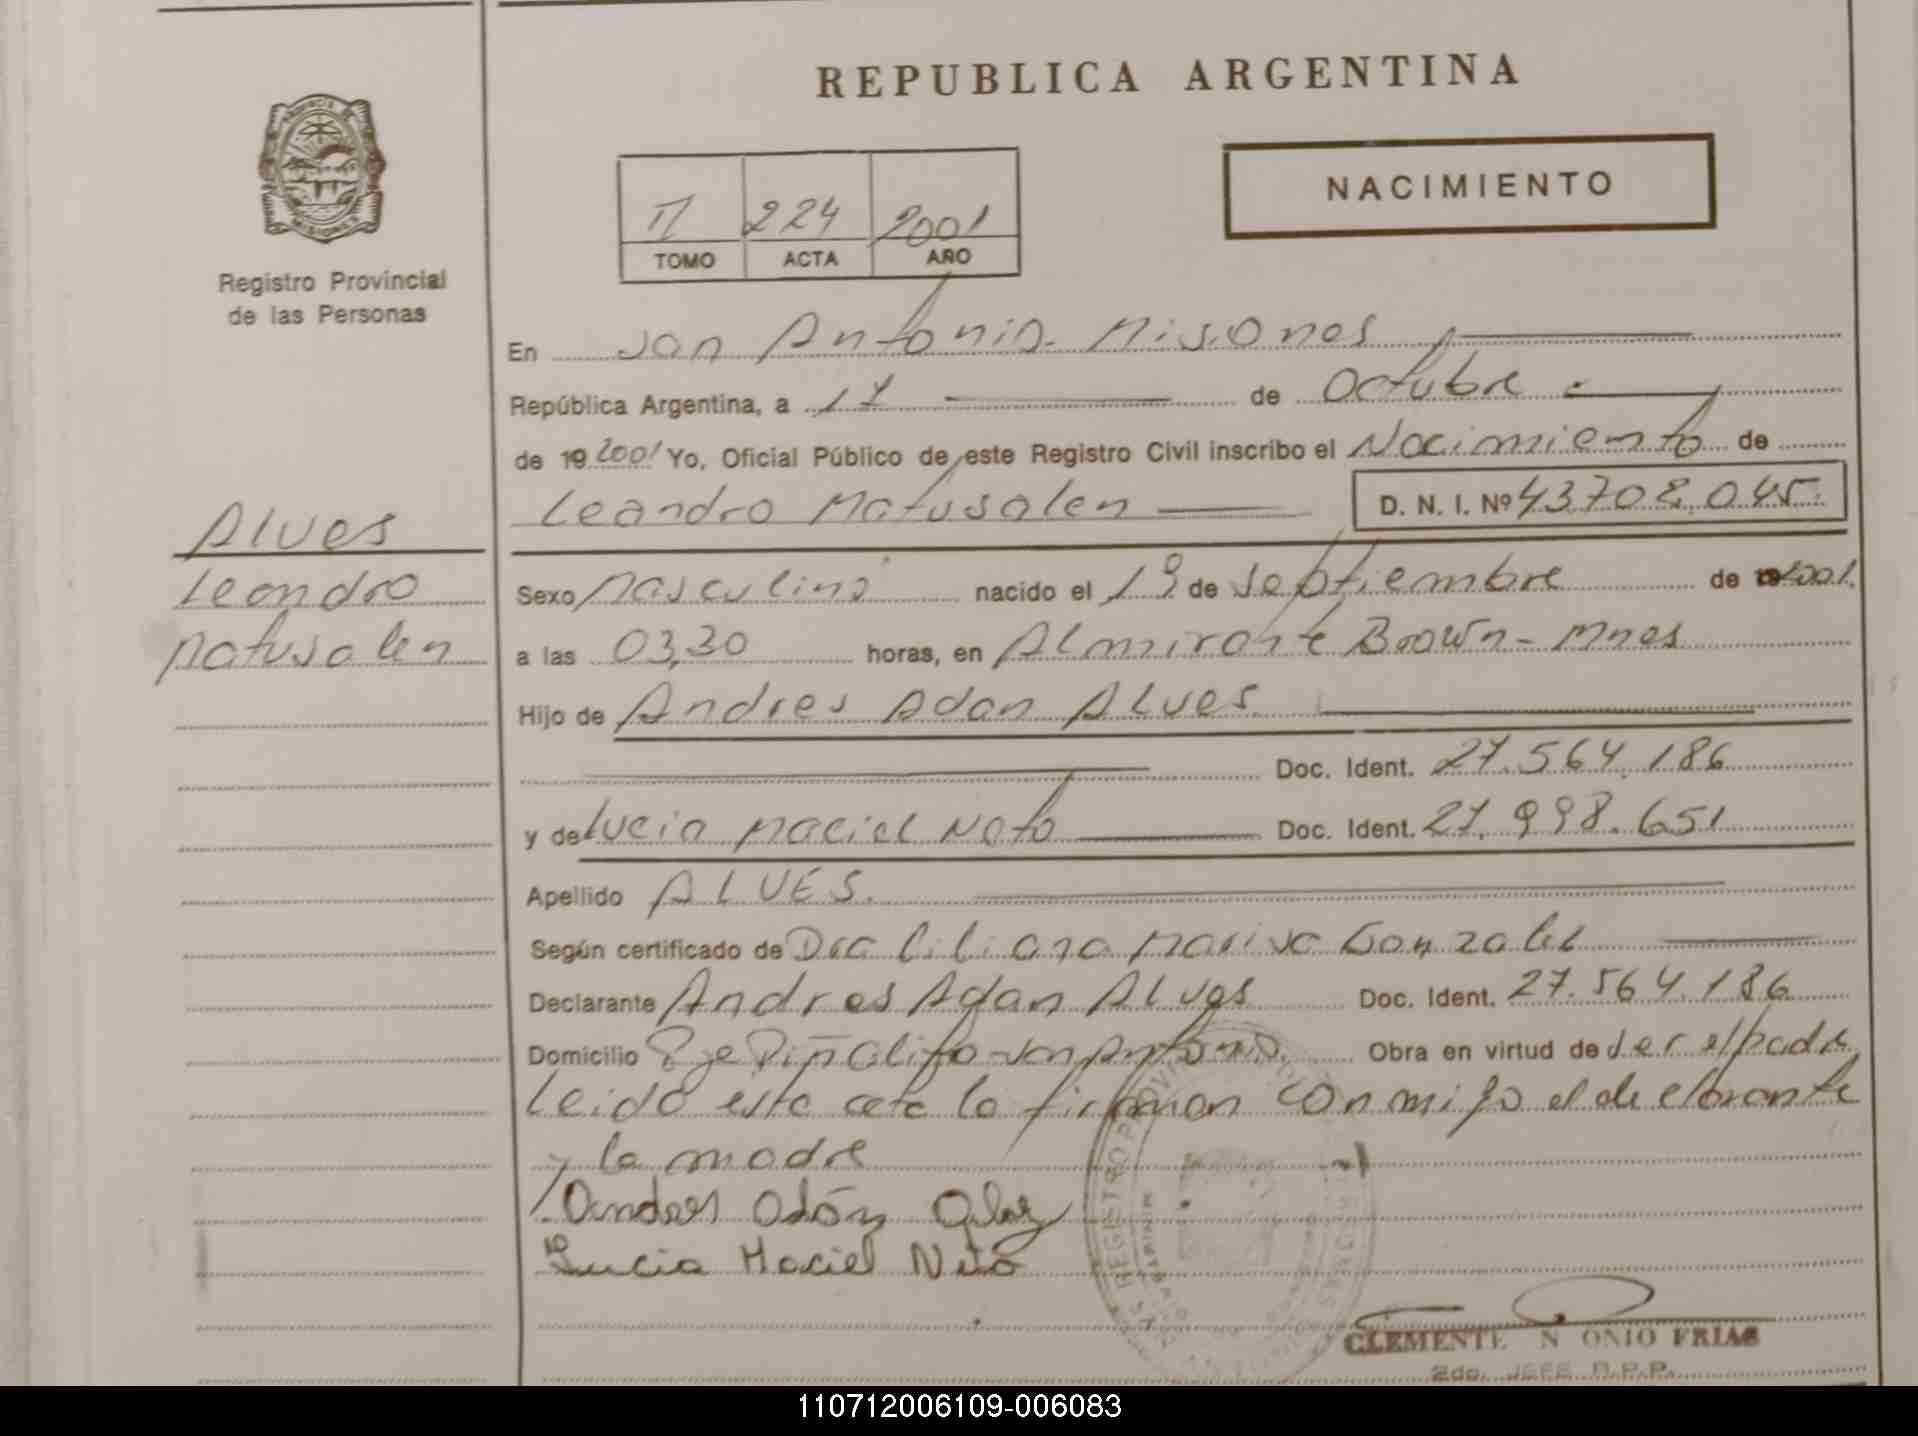 REPUBLICA ARGENTINA
NACIMIENTO
II 224 2001
TOMO ACTA AÑO
Registro Provincial
de las Personas
En San Antonio Misiones
República Argentina, a 17 de Octubre
de 19 2001 Yo, Oficial Público de este Registro Civil inscribo el Nacimiento de
Leandro Matusalen D. N. I. Nº 43.708.045
Alves
Leandro
Matusalen
Sexo Masculino nacido el 19 de Septiembre de 2001.
a las 03,30 horas, en Almirante Brown - Mnes
Hijo de Andres Adan Alves
Doc. Ident. 27.564.186
y de Lucia Maciel Neto Doc. Ident. 27.998.651
Apellido ALVES.
Según certificado de Dra Liliana Gonzalez
Declarante Andres Adan Alves Doc. Ident. 27.564.186
Domicilio Pje Piñalito San Antonio. Obra en virtud de ser el padre
Leido esta acta la firman conmigo el declarante
y la madre
Andres Adán Alvez
Lucia Maciel Neto
CLEMENTE FRIAS
2do. JEFE R.P.P.
110712006109-006083